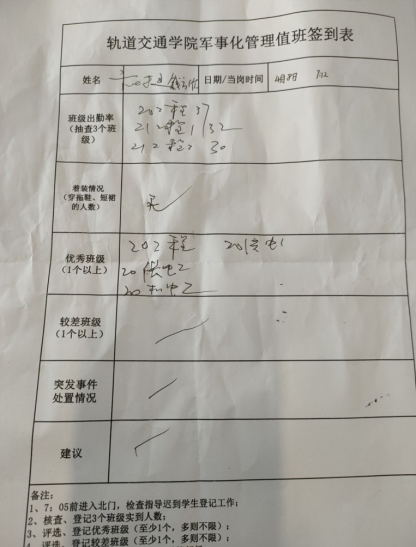 轨道交通学院军事化管理值班签到表
姓名
日期/当岗时间
4月8日
班级出勤率
（抽查3个班
级）
37
32
30
着装情况
（穿拖鞋、短裙
的人数）
无
优秀班级
（1个以上）
20供电1
20供电2
20机电2
较差班级
（1个以上）
突发事件
处置情况
建议
备注：
1、7：05前进入北门，检查指导迟到学生登记工作；
2、核查、登记3个班级实到人数；
3、评选、登记优秀班级（至少1个，多则不限）；
4、评选、登记较差班级（至少1个，多则不限）